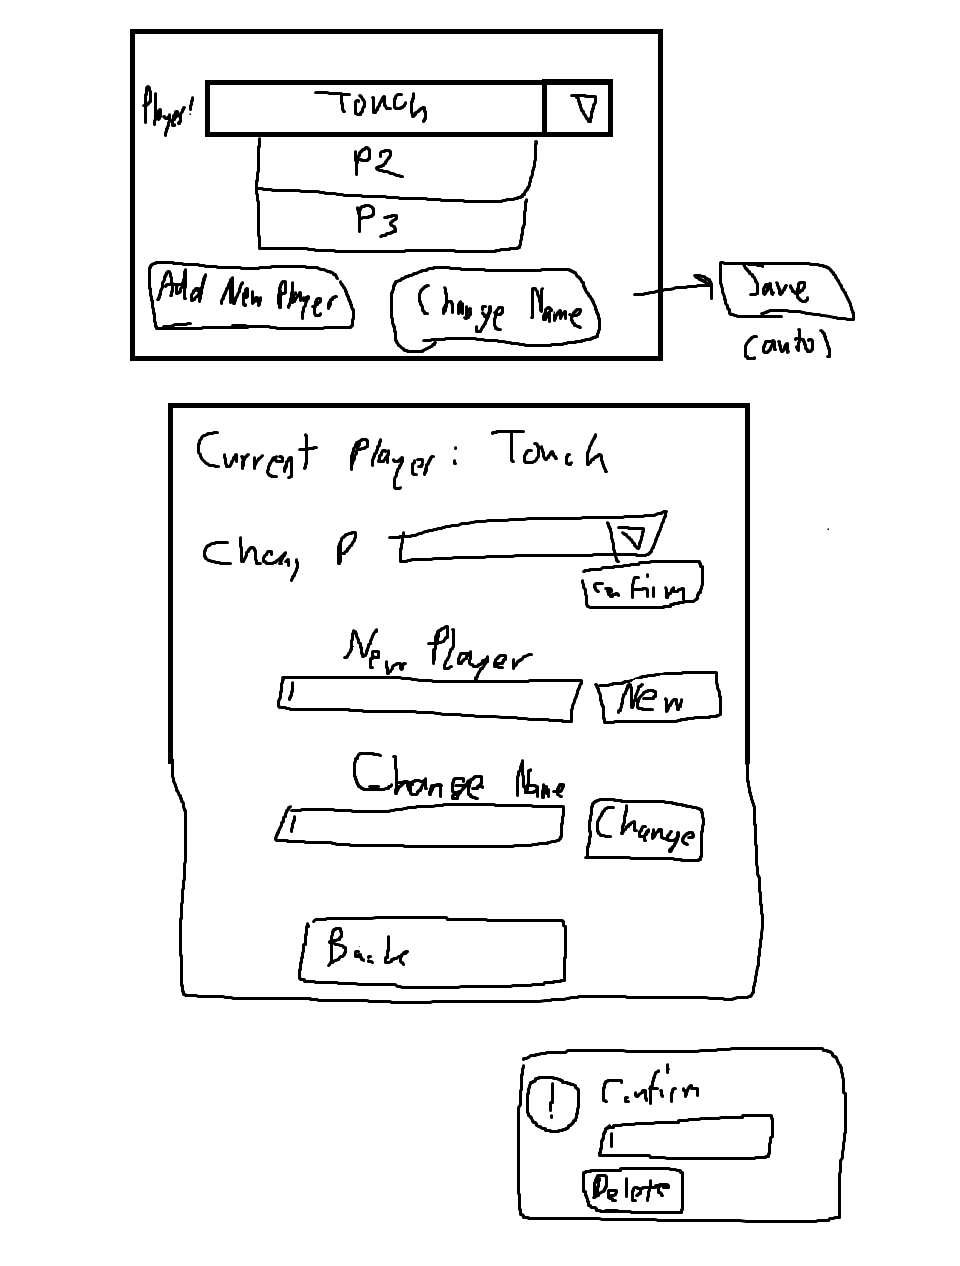 Player: Touch
P2
P3
Add New Player
Change Name
Save
(auto)
Current Player: Touch
Chang P
Confirm
New Player
New
Change Name
Change
Back
! Confirm
Delete